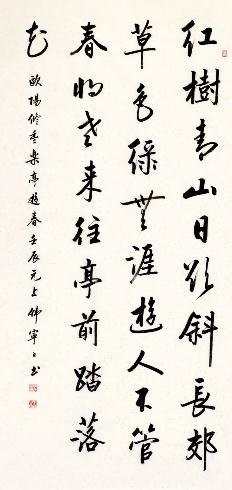 紅樹青山日欲斜長郊
草色綠無涯遊人不管
春將老来往亭前踏落
花
歐陽修豐樂亭遊春壬辰元書